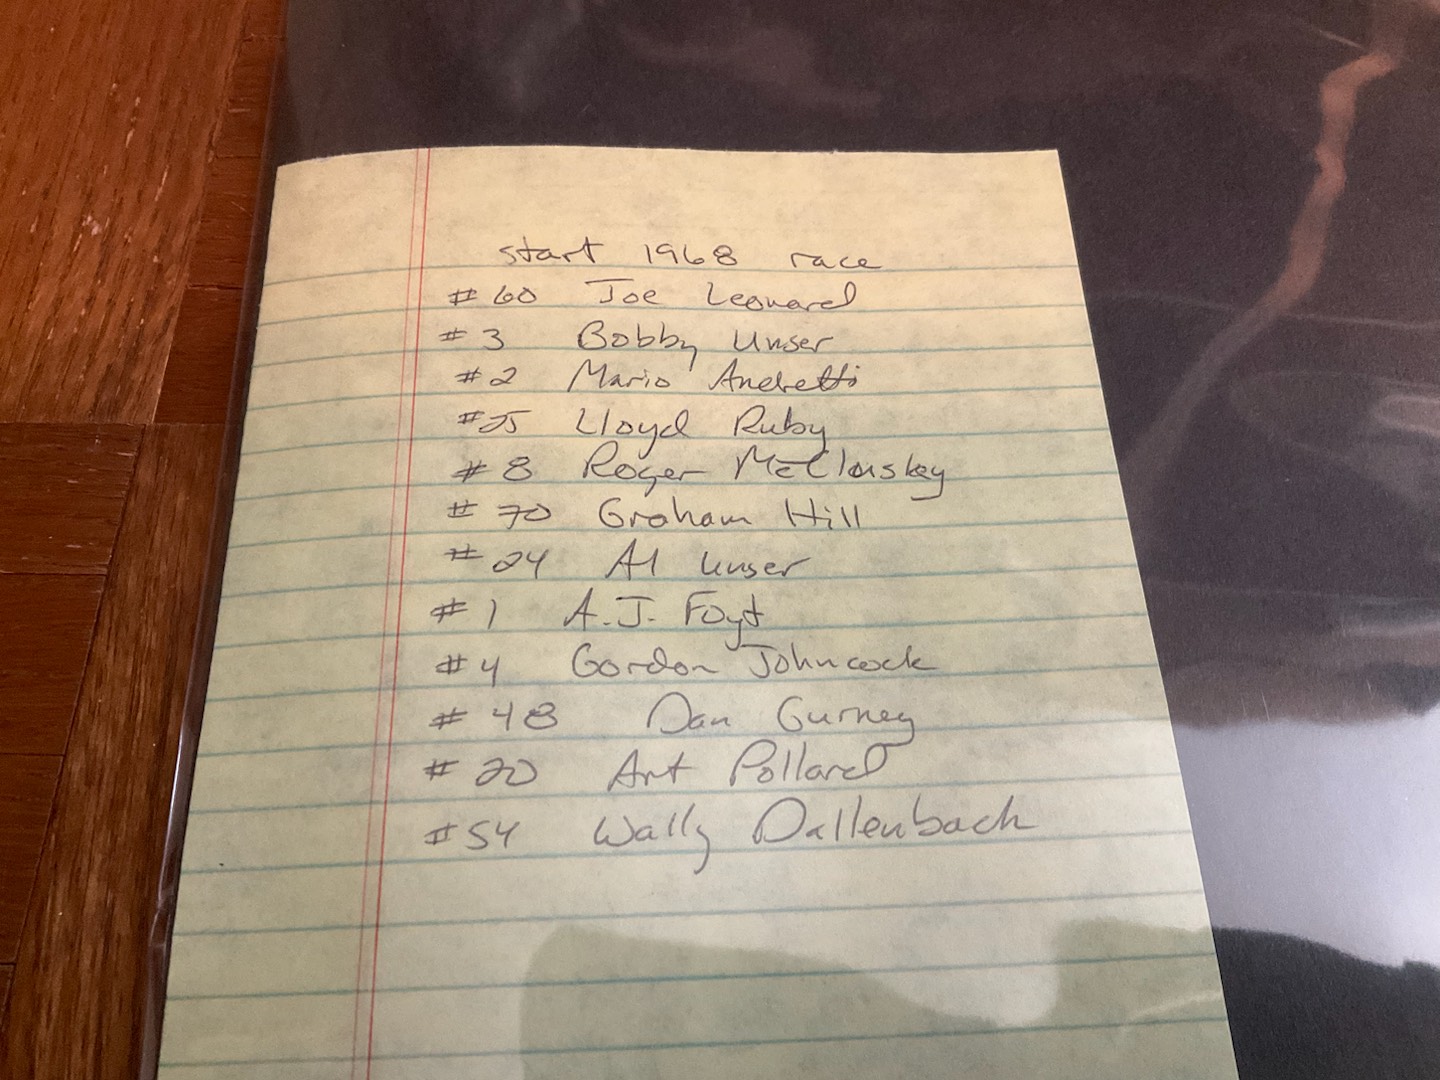 start 1968 race
# 60 Joe Leonard
# 3 Bobby Unser
# 2 Mario Andretti
# 25 Lloyd Ruby
# 8 Roger McCluskey
# 70 Graham Hill
# 24 Al Unser
# 1 A.J. Foyt
# 4 Gordon Johncock
# 48 Dan Gurney
# 20 Art Pollard
# 54 Wally Dallenbach